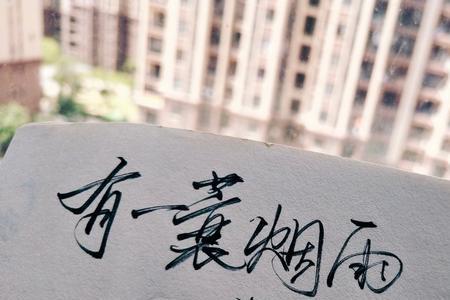 有一蓑烟雨